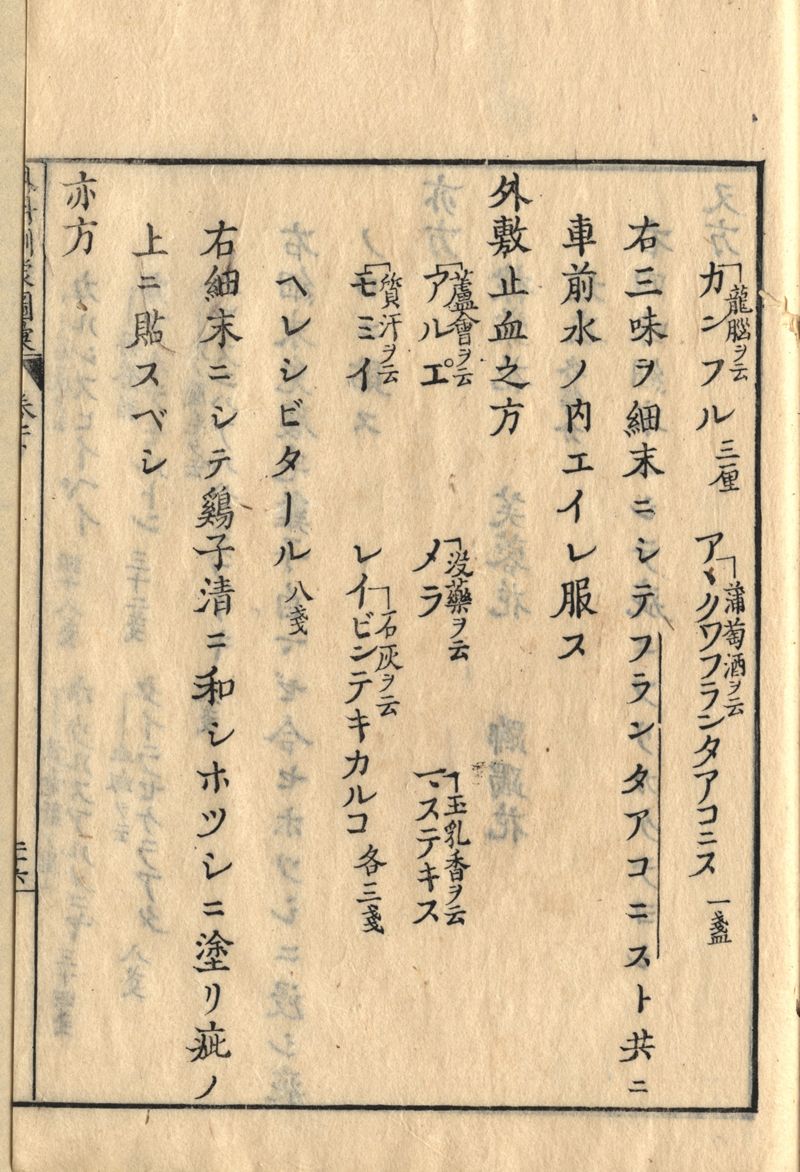 カンフル 龍腦ヲ云 三厘 アヽクワフランタアコニス 蒲萄酒ヲ云 一盞
右三味ヲ細末ニシテフランタアコニスト共ニ
車前水ノ内エイレ服ス
外敷止血之方
アルエ 蘆會ヲ云 メラ 没藥ヲ云 マヽステキス 玉乳香ヲ云
モミイ 質汗ヲ云 レイビンテキカルコ 石灰ヲ云 各三戔
ヘレシビタール 八戔
右細末ニシテ鷄子清ニ和シホツシニ塗リ疵ノ
上ニ貼スベシ
亦方